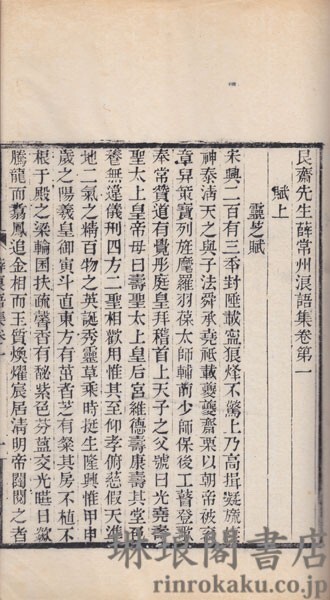 艮齋先生薛常州浪語集卷第一
賦上
靈芝賦
宋興二百有三季封陲載謐狼烽不驚上乃高拱凝旒
神泰淸天之與子法舜承堯祗載夔夔齋栗以朝帝被袞
章昇策寶列旌麾羅羽葆太師輔前少師保後工瞽登歌
奉常贊道有覺彤庭皇拜稽首上天子之父號曰光堯壽
聖太上皇帝母曰壽聖太上皇后宮維德壽康壽其堂
卷無違儀刑四方二聖相歡用惟其至仰孝俯慈假天
地二氣之精百物之英誕秀靈草乘時挺生隆興惟甲申
歲之陽羲皇御寅斗直東方有茁者芝有粲其房不植不
根于殿之梁輪囷扶疏馨香有馝紫色芬蕴交光暀日歘
騰龍而翥鳳追金相而玉質煥燿宸居淸明帝閎閱之者
琳琅閣書店
rinrokaku.co.jp